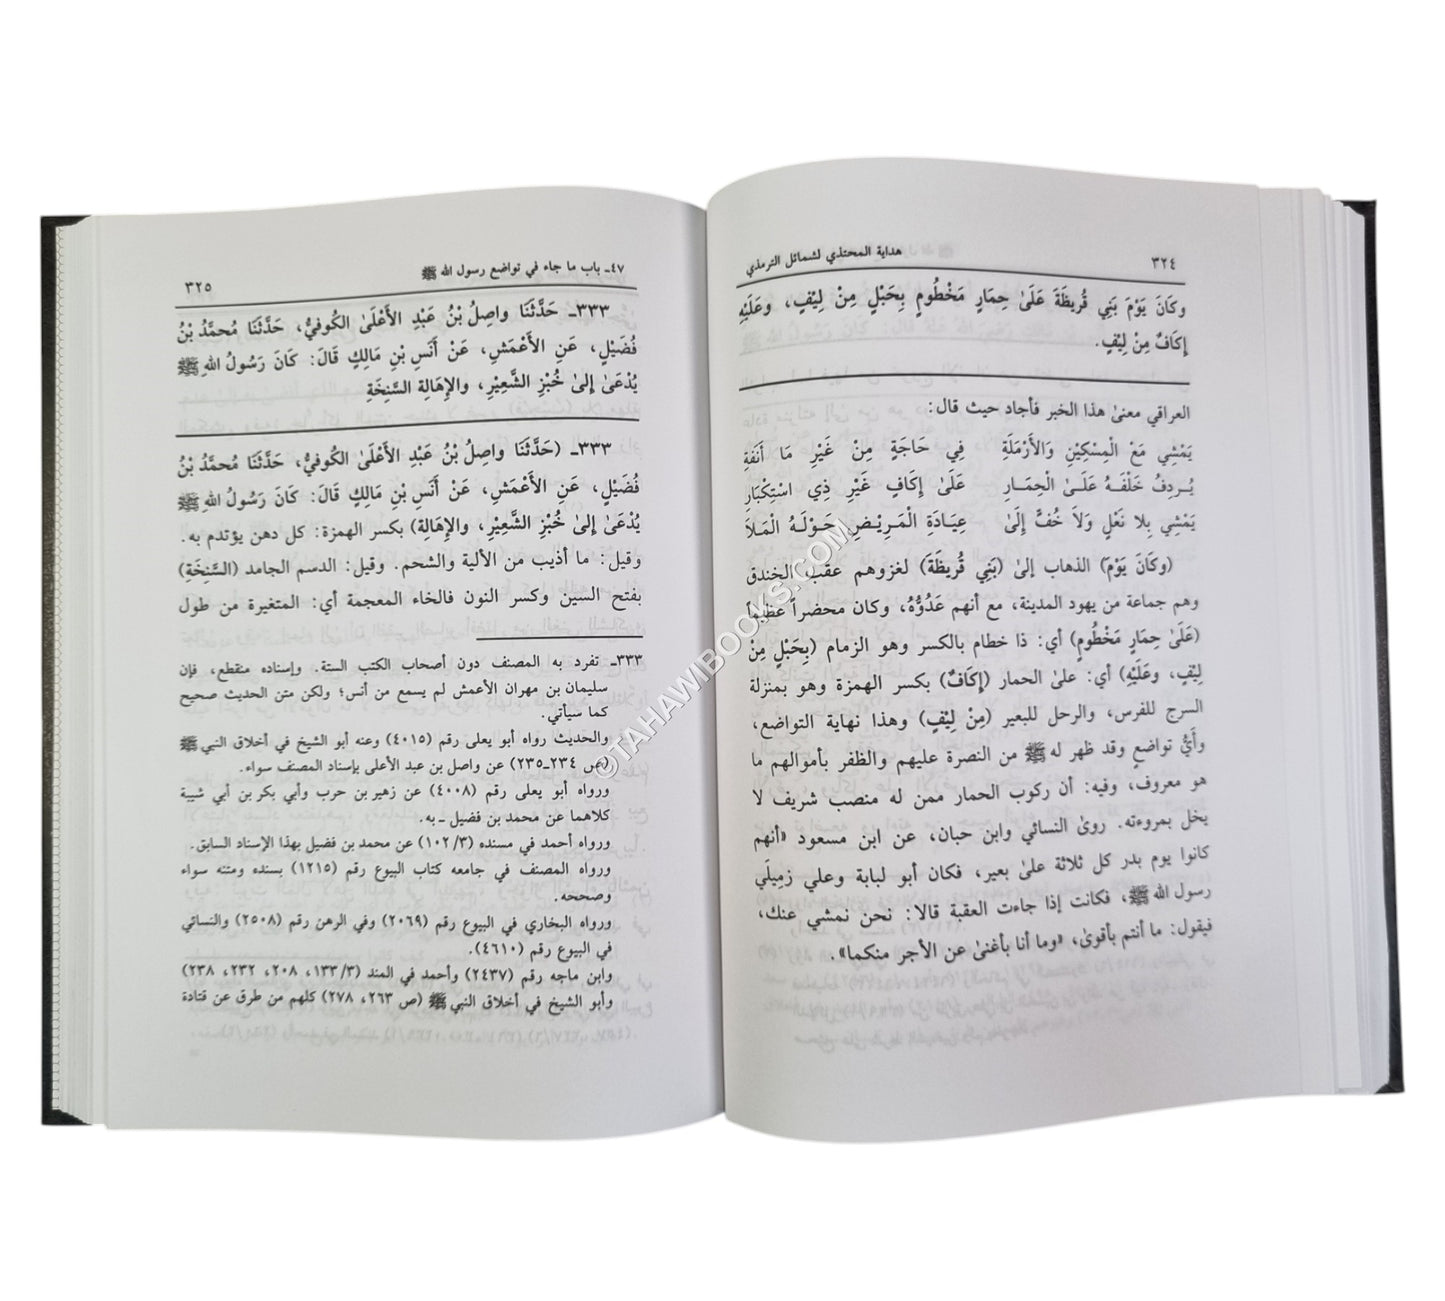 ٣٢٤
هداية المحتذي لشمائل الترمذي
وكَانَ يَوْمَ بَنِي قُرَيظَةَ عَلَىٰ حِمَارٍ مَخْطُومٍ بِحَبْلٍ مِنْ لِيْفٍ، وعَلَيْهِ
إِكَافٌ مِنْ لِيْفٍ.
العراقي معنىٰ هذا الخبر فأجاد حيث قال:
يَمْشِي مَعْ الْمِسْكِيْنِ وَالأَرْمَلَةِ فِي حَاجَةٍ مِنْ غَيْرِ مَا أَنَفَةِ
يُـردِفُ خَلْفَـهُ عَلَـىٰ الْحِمَـارِ عَلَىٰ إِكَافٍ غَيْرِ ذِي اسْتِكْبَارِ
يَمْشِي بِلا نَعْلٍ وَلاَ خُفٍّ إِلَىٰ عِيَـادَةِ الْمَـرِيْـضِ حَـوْلَـهُ الْمَـلاَ
(وكَانَ يَوْمَ) الذهاب إلىٰ (بَنِي قُريظَةَ) لغزوهم عقب الخندق
وهم جماعة من يهود المدينة، مع أنهم عَدُوُّهُ، وكان محضراً عظيماً
(عَلَىٰ حِمَارٍ مَخْطُومٍ) أي: ذا خطام بالكسر وهو الزمام (بِحَبْلٍ مِنْ
لِيْفٍ، وعَلَيْهِ) أي: علىٰ الحمار (إِكَافٌ) بكسر الهمزة وهو بمنزلة
السرج للفرس، والرحل للبعير (مِنْ لِيْفٍ) وهذا نهاية التواضع،
وأَيُّ تواضعٍ وقد ظهر له ﷺ من النصرة عليهم والظفر بأموالهم ما
هو معروف، وفيه: أن ركوب الحمار ممن له منصب شريف لا
يخل بمروءته. روىٰ النسائي وابن حبان، عن ابن مسعود «أنهم
كانوا يوم بدر كل ثلاثة علىٰ بعير، فكان أبو لبابة وعلي زمِيلَي
رسول الله ﷺ، فكانت إذا جاءت العقبة قالا: نحن نمشي عنك،
فيقول: ما أنتم بأقوىٰ، «وما أنا بأغنىٰ عن الأجر منكما».
٤٧ـ باب ما جاء في تواضع رسول الله ﷺ
٣٢٥
٣٣٣ـ حَدَّثَنَا واصِلُ بْنُ عَبْدِ الأَعْلَىٰ الكُوفيُّ، حَدَّثَنَا مُحمَّدُ بْنُ
فُضَيْلٍ، عَنِ الأَعْمَشِ، عَنْ أَنَسِ بْنِ مَالِكٍ قَالَ: كَانَ رَسُولُ اللهِ ﷺ
يُدْعَىٰ إِلىٰ خُبْزِ الشَّعِيْرِ، والإِهَالةِ السَّنِخَةِ
٣٣٣ـ (حَدَّثَنَا واصِلُ بْنُ عَبْدِ الأَعْلَىٰ الكُوفيُّ، حَدَّثَنَا مُحمَّدُ بْنُ
فُضَيْلٍ، عَنِ الأَعْمَشِ، عَنْ أَنَسِ بْنِ مَالِكٍ قَالَ: كَانَ رَسُولُ اللهِ ﷺ
يُدْعَىٰ إِلىٰ خُبْزِ الشَّعِيْرِ، والإِهَالةِ) بكسر الهمزة: كل دهن يؤتدم به.
وقيل: ما أذيب من الألية والشحم. وقيل: الدسم الجامد (السَّنِخَةِ)
بفتح السين وكسر النون فالخاء المعجمة أي: المتغيرة من طول
٣٣٣ـ تفرد به المصنف دون أصحاب الكتب الستة. وإسناده منقطع، فإن
سليمان بن مهران الأعمش لم يسمع من أنس؛ ولكن متن الحديث صحيح
كما سيأتي.
والحديث رواه أبو يعلى رقم (٤٠١٥) وعنه أبو الشيخ في أخلاق النبي ﷺ
(ص ٢٣٤ـ٢٣٥) عن واصل بن عبد الأعلى بإسناد المصنف سواء.
ورواه أبو يعلى رقم (٤٠٠٨) عن زهير بن حرب وأبي بكر بن أبي شيبة
كلاهما عن محمد بن فضيل ـ به.
ورواه أحمد في مسنده (١٠٢/٣) عن محمد بن فضيل بهذا الإسناد السابق.
ورواه المصنف في جامعه كتاب البيوع رقم (١٢١٥) بسنده ومتنه سواء
وصححه.
ورواه البخاري في البيوع رقم (٢٠٦٩) وفي الرهن رقم (٢٥٠٨) والنسائي
في البيوع رقم (٤٦١٠).
وابن ماجه رقم (٢٤٣٧) وأحمد في المند (١٣٣/٣، ٢٠٨، ٢٣٢، ٢٣٨)
وأبو الشيخ في أخلاق النبي ﷺ (ص ٢٦٣، ٢٧٨) كلهم من طرق عن قتادة
©TAHAWIBOOKS.COM